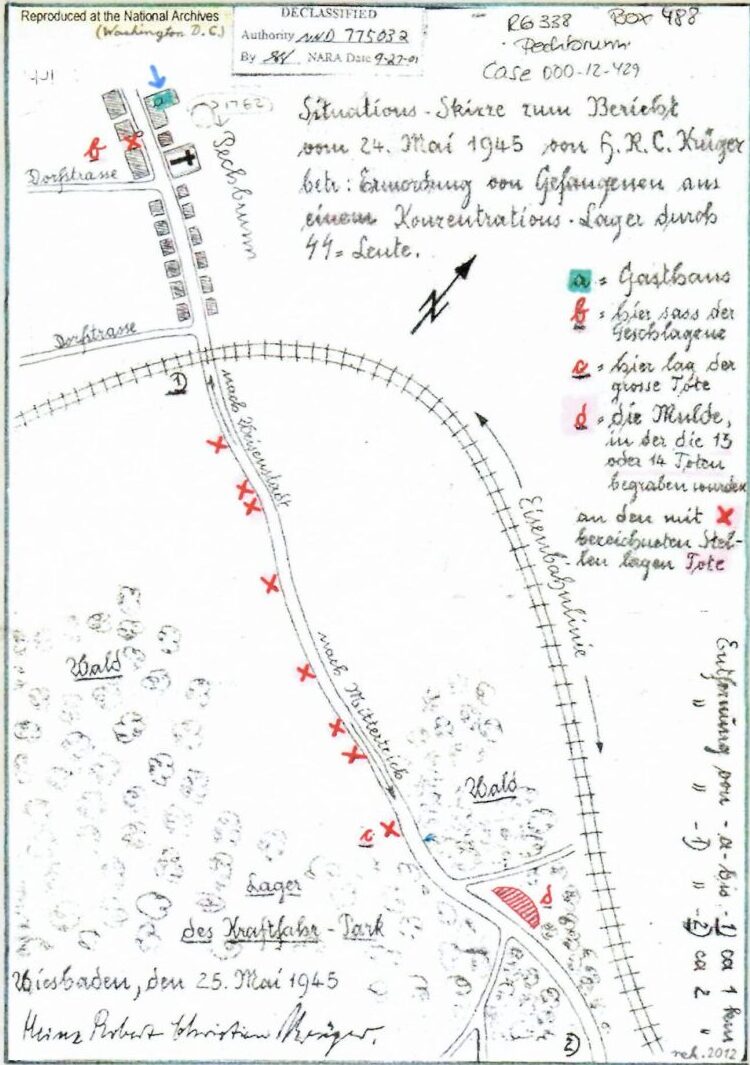 Reproduced at the National Archives
(Washington D.C.)
DECLASSIFIED
Authority NND 775032
By SH NARA Date 9-27-01
RG 338 Box 488
Pechbrunn
Case 000-12-429
Situations-Skizze zum Bericht
vom 24. Mai 1945 von H.R.C. Krüger
betr: Ermordung von Gefangenen aus
einem Konzentrations-Lager durch
SS-Leute.
a
b
Dorfstrasse
Pechbrunn
a = Gasthaus
b = hier sass der
Geschlagene
c = hier lag der
grosse Tote
d = die Mulde,
in der die 13
oder 14 Toten
begraben wurden
an den mit x
bezeichneten Stel-
len lagen Tote
Dorfstrasse
1)
nach Wisenstadt
Eisenbahnlinie
nach Mitterteich
Wald
Wald
c
d
Lager
des Kraftfahr-Park
Entfernung von -a- bis 1) ca 1 km
" " -1) " -2) ca 2 "
Wiesbaden, den 25. Mai 1945
Heinz Robert Christian Krüger.
2)
reh. 2012